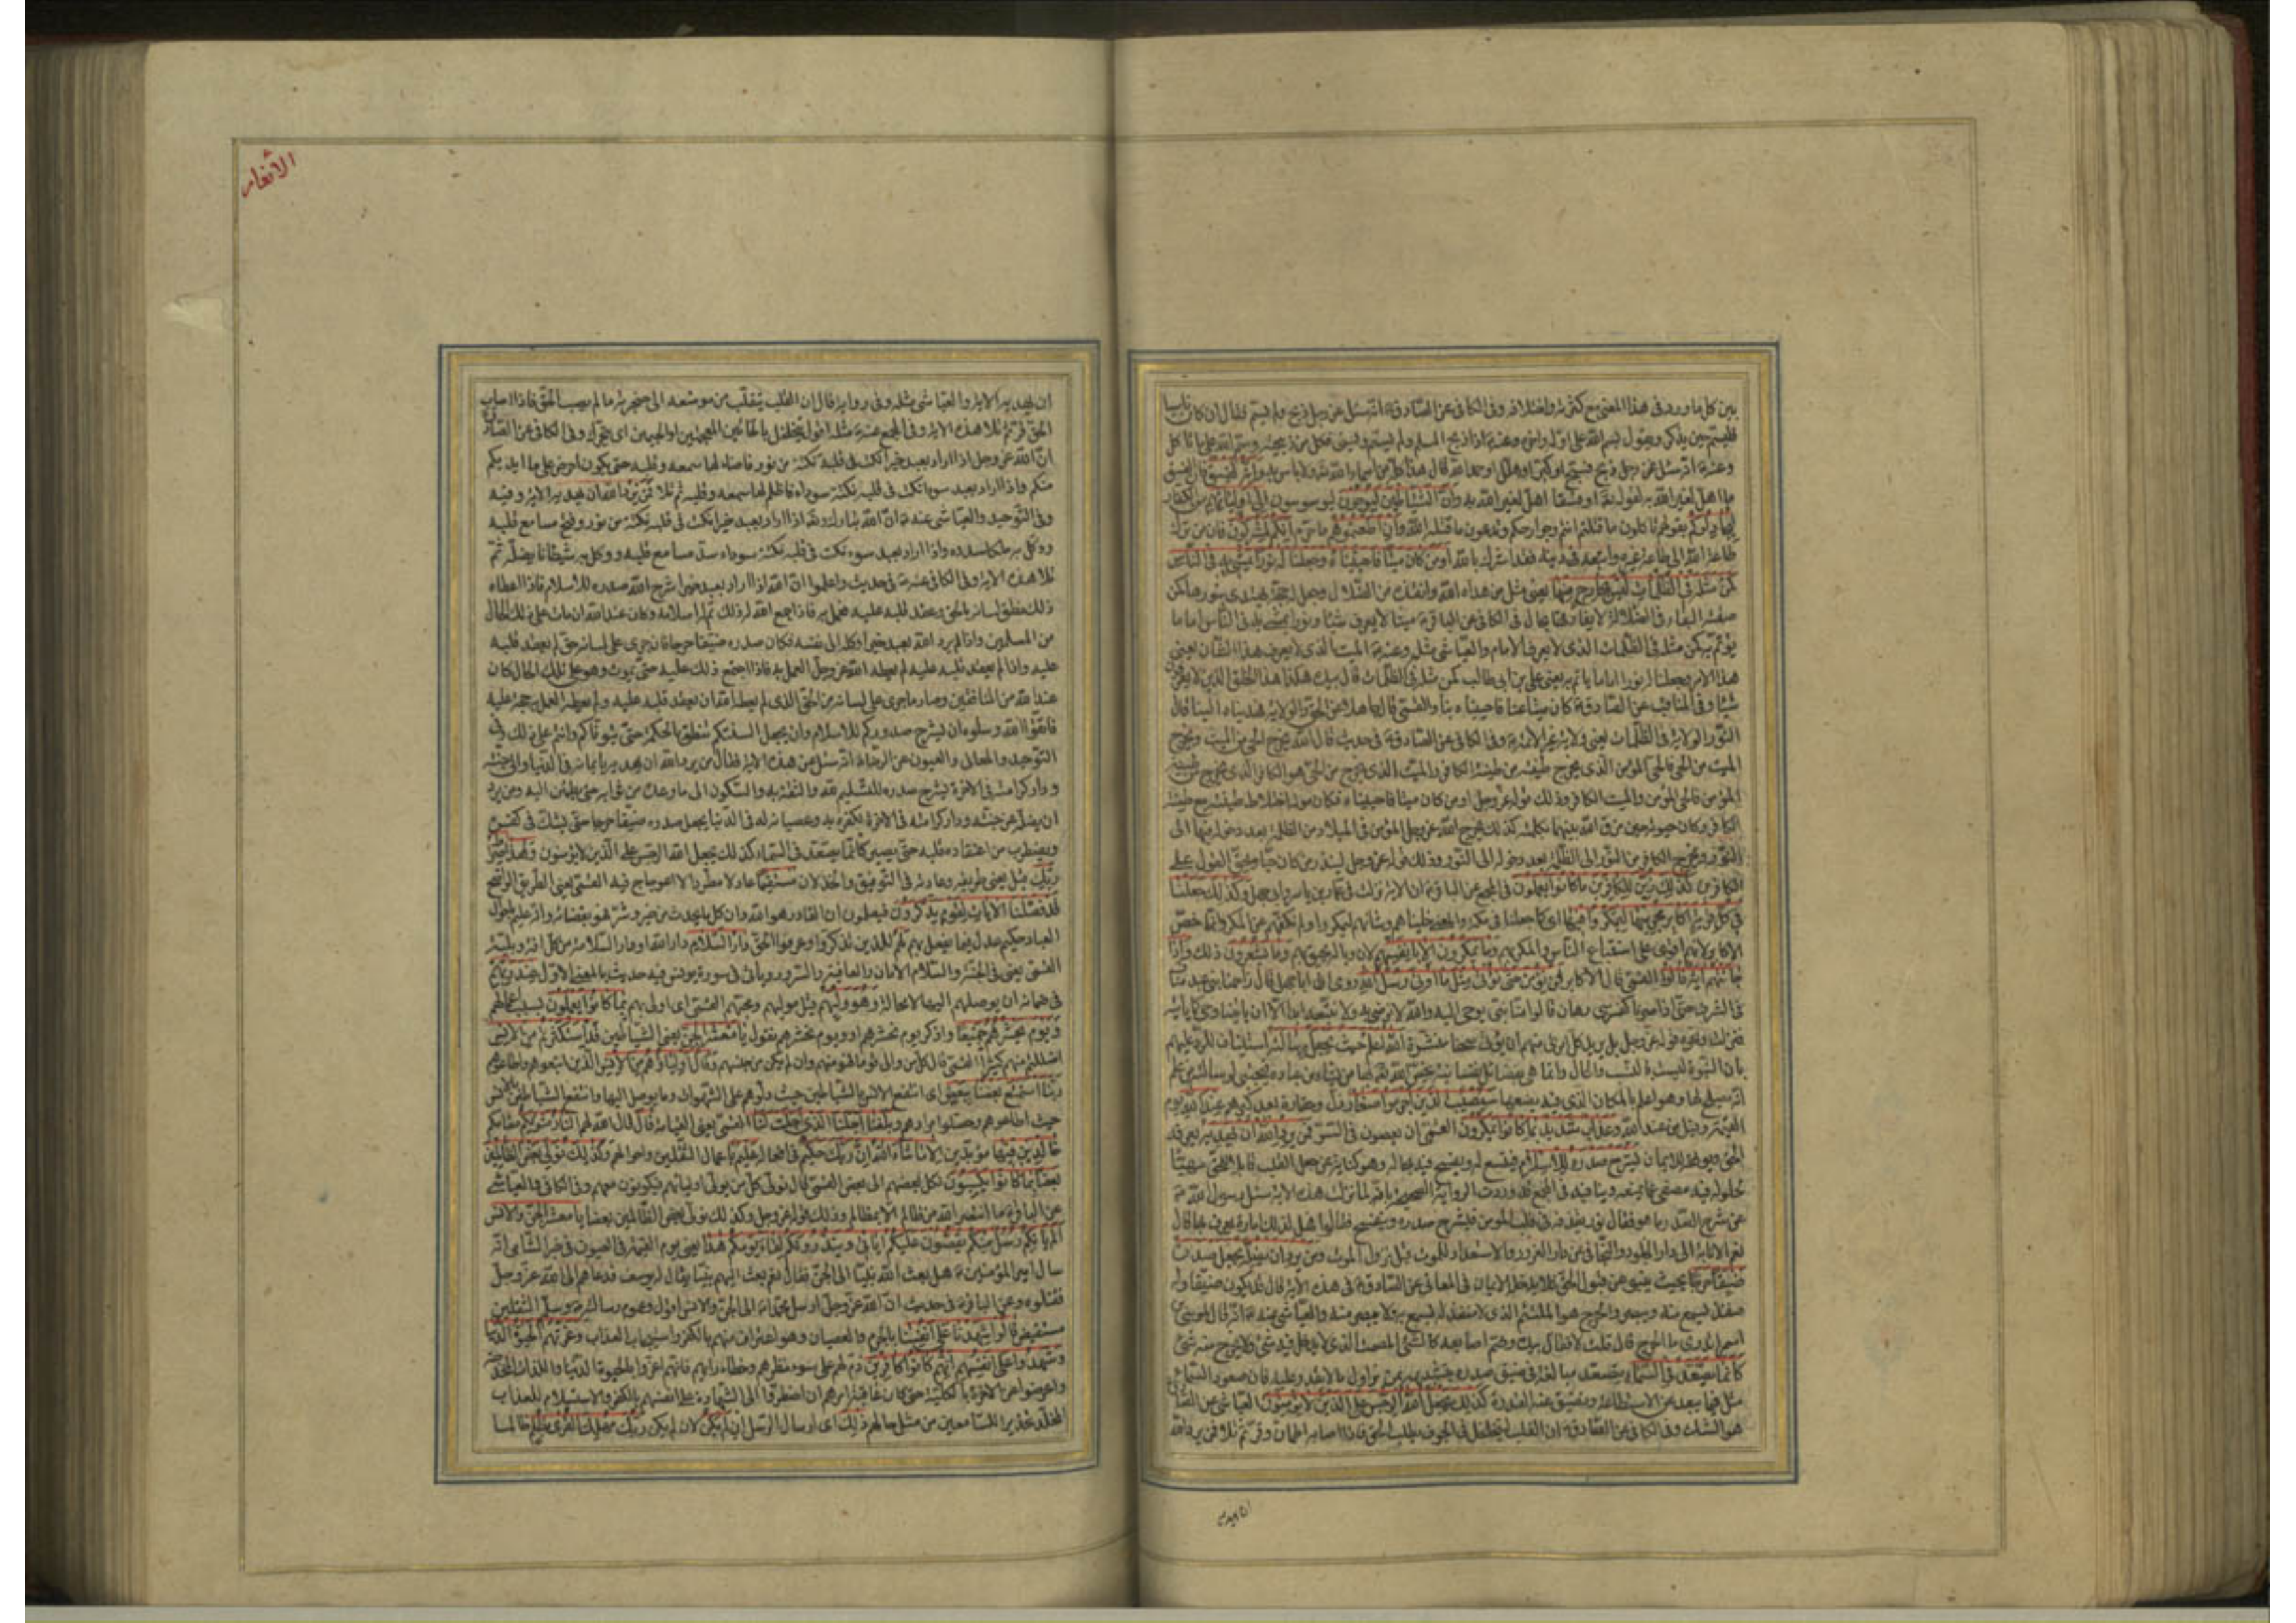 بين كل ما ورد في هذا المعنى مع كثرته واختلافه وفي الكافي عن الصادق ع انه سئل عن رجل ذبح ولم يسم فقال ان كان ناسيا
فليسم حين يذكر ويقول بسم الله على اوله واخره وعنه ع اذا ذبح المسلم ولم يسم ونسي فكل من ذبيحته وسم الله على ما تأكل
وعنه ع انه سئل عن رجل ذبح فسبح او كبر او هلل او حمد الله قال هذا كله من اسماء الله لا بأس به وانه لفسق قال الفسق
ما اهل لغير الله به لقوله تعالى او فسقا اهل لغير الله به وان الشياطين ليوحون ليوسوسون الى اوليائهم من الكفار
ليجادلوكم بقولهم تأكلون ما قتلتم انتم وجوارحكم وتدعون ما قتله الله وان اطعتموهم ما حرم انكم لمشركون فان من ترك
طاعة الله الى طاعة غيره واتبعه في دينه فقد اشرك بالله اومن كان ميتا فاحييناه وجعلنا له نورا يمشي به في الناس
كمن مثله في الظلمات ليس بخارج منها يعني مثل من هداه الله وانقذه من الضلال وجعل له حجة يهتدي بنورها كمن
صفته البقاء في الضلالة لا يفارقها بحال في الكافي عن الباقر ع ميتا لا يعرف شيئا ونورا يمشي به في الناس اماما
يؤتم به كمن مثله في الظلمات الذي لا يعرف الامام والعياشي مثله وعنه ع الميت الذي لا يعرف هذا الشأن يعني
هذا الامر وجعلنا له نورا اماما يأتم به يعني علي بن ابي طالب كمن مثله في الظلمات قال بيده هكذا هذا الخلق الذين لا يعرفون
شيئا وفي المناقب عن الصادق ع كان ميتا عنا فاحييناه بنا والقمي قال جاهلا عن الحق والولاية فهديناه الينا قال
النور الولاية في الظلمات يعني ولاية غير الائمة ع وفي الكافي عن الصادق ع في حديث قال الله يخرج الحي من الميت ويخرج
الميت من الحي فالحي المؤمن الذي يخرج طينته من طينة الكافر والميت الذي يخرج من الحي هو الكافر الذي يخرج من طينة
المؤمن فالحي المؤمن والميت الكافر وذلك قوله عز وجل اومن كان ميتا فاحييناه فكان موته اختلاط طينته مع طينة
الكافر وكان حيوته حين فرق الله بينهما بكلمته كذلك يخرج الله عز وجل المؤمن في الميلاد من الظلمة بعد دخوله فيها الى
النور ويخرج الكافر من النور الى الظلمة بعد دخوله الى النور وذلك قوله عز وجل لينذر من كان حيا ويحق القول على
الكافرين كذلك زين للكافرين ما كانوا يعملون في المجمع عن الباقر ع ان الاية نزلت في عمار بن ياسر وابي جهل وكذلك جعلنا
في كل قرية اكابر مجرميها ليمكروا فيها اي كما جعلنا في مكة
الاكابر لانهم اقوى على استتباع الناس والمكر بهم وما يمكرون الا بانفسهم لان وباله يحيق بهم وما يشعرون ذلك واذا
جاءتهم اية قالوا القمي قال الاكابر لن نؤمن حتى نؤتى مثل ما اوتي رسل الله روي ان ابا جهل قال زاحمنا بني عبد مناف
في الشرف حتى اذا صرنا كفرسي رهان قالوا منا نبي يوحى اليه والله لا نرضى به ولا نتبعه ابدا الا ان يأتينا وحي كما يأتيه
فنزلت ونحوه قوله عز وجل بل يريد كل امرئ منهم ان يؤتى صحفا منشرة الله اعلم حيث يجعل رسالته استيناف للرد عليهم
بان النبوة ليست بالنسب والمال وانما هي بفضائل نفسانية يخص الله بها من يشاء من عباده فيجتبي لرسالته من علم
انه يصلح لها وهو اعلم بالمكان الذي فيه يضعها سيصيب الذين اجرموا صغار ذل وحقارة بعد كبرهم عند الله يوم
القيمة وقيل من عند الله وعذاب شديد بما كانوا يمكرون القمي اي يعصون في السر فمن يرد الله ان يهديه يعرفه
الحق ويوفقه للايمان يشرح صدره للاسلام فيتسع له ويفسح فيه مجاله وهو كناية عن جعل القلب قابلا للحق مهيئا
لحلوله فيه مصفى عما يمنعه وينافيه في المجمع قد وردت الرواية الصحيحة بانه لما نزلت هذه الاية سئل رسول الله ص
عن شرح الصدر ما هو فقال نور يقذفه في قلب المؤمن فيشرح صدره وينفسح قالوا هل لذلك امارة يعرف بها قال
نعم الانابة الى دار الخلود والتجافي عن دار الغرور والاستعداد للموت قبل نزول الموت ومن يرد ان يضله يجعل صدره
ضيقا حرجا بحيث ينبو عن قبول الحق فلا يدخله الايمان في المعاني عن الصادق ع في هذه الاية قال قد يكون ضيقا وله
منفذ يسمع منه ويبصر والحرج هو الملتئم الذي لا منفذ له يسمع به ولا يبصر منه والعياشي عنه ع انه قال لموسى بن
اشيم اتدري ما الحرج قال قلت لا فقال بيده وضم اصابعه كالشيء المصمت الذي لا يدخل فيه شيء ولا يخرج منه شيء
كانما يصعد في السماء يتصعد مبالغة في ضيق صدره بمن يزاول ما لا يقدر عليه فان صعود السماء
مثل فيما يبعد عن الاستطاعة ويضيق عند المقدرة كذلك يجعل الله الرجس على الذين لا يؤمنون العياشي عن الصادق
هو الشك وفي الكافي عن الصادق ع ان القلب ليتجلجل في الجوف يطلب الحق فاذا اصابه اطمأن وقر ثم تلا فمن يرد الله
ان يهديه
الانعام
ان يهديه الاية والعياشي مثله وفي رواية قال ان القلب يتقلب من موضعه الى حنجرته ما لم يصب الحق فاذا اصاب
الحق قر ثم تلا هذه الاية وفي المجمع عنه ع مثله اقول يتخلخل بالخائين المعجمتين او الجيمين اي يتحرك وفي الكافي عن الصادق
ان الله عز وجل اذا اراد بعبد خيرا نكت في قلبه نكتة من نور فاضاء لها سمعه وقلبه حتى يكون احرص على ما في ايديكم
منكم واذا اراد بعبد سوءا نكت في قلبه نكتة سوداء فاظلم لها سمعه وقلبه ثم تلا فمن يرد الله ان يهديه الاية وفيه
وفي التوحيد والعياشي عنه ع ان الله تبارك وتعالى اذا اراد بعبد خيرا نكت في قلبه نكتة من نور وفتح مسامع قلبه
ووكل به ملكا يسدده واذا اراد بعبد سوء نكت في قلبه نكتة سوداء وسد مسامع قلبه ووكل به شيطانا يضله ثم
تلا هذه الاية وفي الكافي عنه ع في حديث واعلموا ان الله اذا اراد بعبد خيرا شرح الله صدره للاسلام فاذا اعطاه
ذلك نطق لسانه بالحق وعقد قلبه عليه فعمل به فاذا جمع الله له ذلك تم له اسلامه وكان عند الله ان مات على ذلك الحال
من المسلمين واذا لم يرد الله بعبد خيرا وكله الى نفسه فكان صدره ضيقا حرجا فان جرى على لسانه حق لم يعقد قلبه
عليه واذا لم يعقد قلبه عليه لم يعطه الله عز وجل العمل به فاذا اجتمع ذلك عليه حتى يموت وهو على تلك الحال كان
عند الله من المنافقين وصار ما جرى على لسانه من الحق الذي لم يعطه الله ان يعقد قلبه عليه ولم يعطه العمل به حجة عليه
فاتقوا الله وسلوه ان يشرح صدوركم للاسلام وان يجعل السنتكم تنطق بالحكمة حتى يتوفاكم وانتم على ذلك وفي
التوحيد والمعاني والعيون عن الرضا ع انه سئل عن هذه الاية فقال من يرد الله ان يهديه بايمانه في الدنيا والى جنته
ودار كرامته في الاخرة يشرح صدره للتسليم لله والثقة به والسكون الى ما وعده من ثوابه حتى يطمئن اليه ومن يرد
ان يضله عن جنته ودار كرامته في الاخرة لكفره به وعصيانه له في الدنيا يجعل صدره ضيقا حرجا حتى يشك في كفره
ويضطرب من اعتقاده قلبه حتى يصير كانما يصعد في السماء كذلك يجعل الله الرجس على الذين لا يؤمنون وهذا صراط
ربك قيل يعني طريقه وعادته في التوفيق والخذلان مستقيما عادلا مطردا لا اعوجاج فيه القمي يعني الطريق الواضح
قد فصلنا الايات لقوم يذكرون فيعلمون ان القادر هو الله وان كل ما يحدث من خير وشر فهو بقضائه وانه عليم باحوال
العباد حكيم عدل فيما يفعل بهم لهم للذين تذكروا وعرفوا الحق دار السلام دار الله او دار السلامة من كل افة وبلية
القمي يعني في الجنة والسلام الامان والعافية والسرور ويأتي في سورة يونس فيه حديث بالمعنى الاول عند ربهم
في ضمانه ان يوصلهم اليها لا محالة وهو وليهم قيل موليهم ومحبهم القمي اي اولى بهم بما كانوا يعملون بسبب اعمالهم
ويوم نحشرهم جميعا واذكر يوم نحشرهم او ويوم نحشرهم نقول يا معشر الجن يعني الشياطين قد استكثرتم من الانس
اضللتم منهم كثيرا القمي قال كل من والى قوما فهو منهم وان لم يكن من جنسهم وقال اولياؤهم من الانس الذين اتبعوهم واطاعوهم
ربنا استمتع بعضنا ببعض اي انتفع الانس بالشياطين حيث دلوهم على الشهوات وما يوصل اليها وانتفع الشياطين بالانس
حيث اطاعوهم وحصلوا مرادهم وبلغنا اجلنا الذي اجلت لنا القمي يعني القيامة قال قال الله لهم النار مثويكم مقامكم
خالدين فيها مؤبدين الا ما شاء الله ان ربك حكيم في افعاله عليم باعمال الثقلين واحوالهم وكذلك نولي بعض الظالمين
بعضا بما كانوا يكسبون نكل بعضهم الى بعض القمي قال نولي كل من يولي اوليائهم فيكونون معهم وفي الكافي والعياشي
عن الباقر ع ما انتصر الله من ظالم الا بظالم وذلك قوله عز وجل وكذلك نولي بعض الظالمين بعضا يا معشر الجن والانس
الم يأتكم رسل منكم يقصون عليكم اياتي وينذرونكم لقاء يومكم هذا يعني يوم القيمة في العيون في خبر الشامي انه
سال امير المؤمنين ع هل بعث الله نبيا الى الجن فقال نعم بعث اليهم نبيا يقال له يوسف فدعاهم الى الله عز وجل
فقتلوه وعن الباقر ع في حديث ان الله عز وجل ارسل محمدا ص الى الجن والانس اقول وعموم رسالته وسل الثقلين
مستفيض قالوا شهدنا على انفسنا بالجرم والعصيان وهو اعتراف منهم بالكفر واستيجاب العذاب وغرتهم الحيوة الدنيا
وشهدوا على انفسهم انهم كانوا كافرين ذم لهم على سوء نظرهم وخطاء رايهم فانهم اغتروا بالحيوة الدنيا واللذات المخدجة
واعرضوا عن الاخرة بالكلية حتى كان عاقبة امرهم ان اضطروا الى الشهادة على انفسهم بالكفر والاستسلام للعذاب
المخلد تحذيرا للسامعين من مثل حالهم ذلك اي ارسال الرسل ان لم يكن لان لم يكن ربك مهلك القرى بظلم ظالما